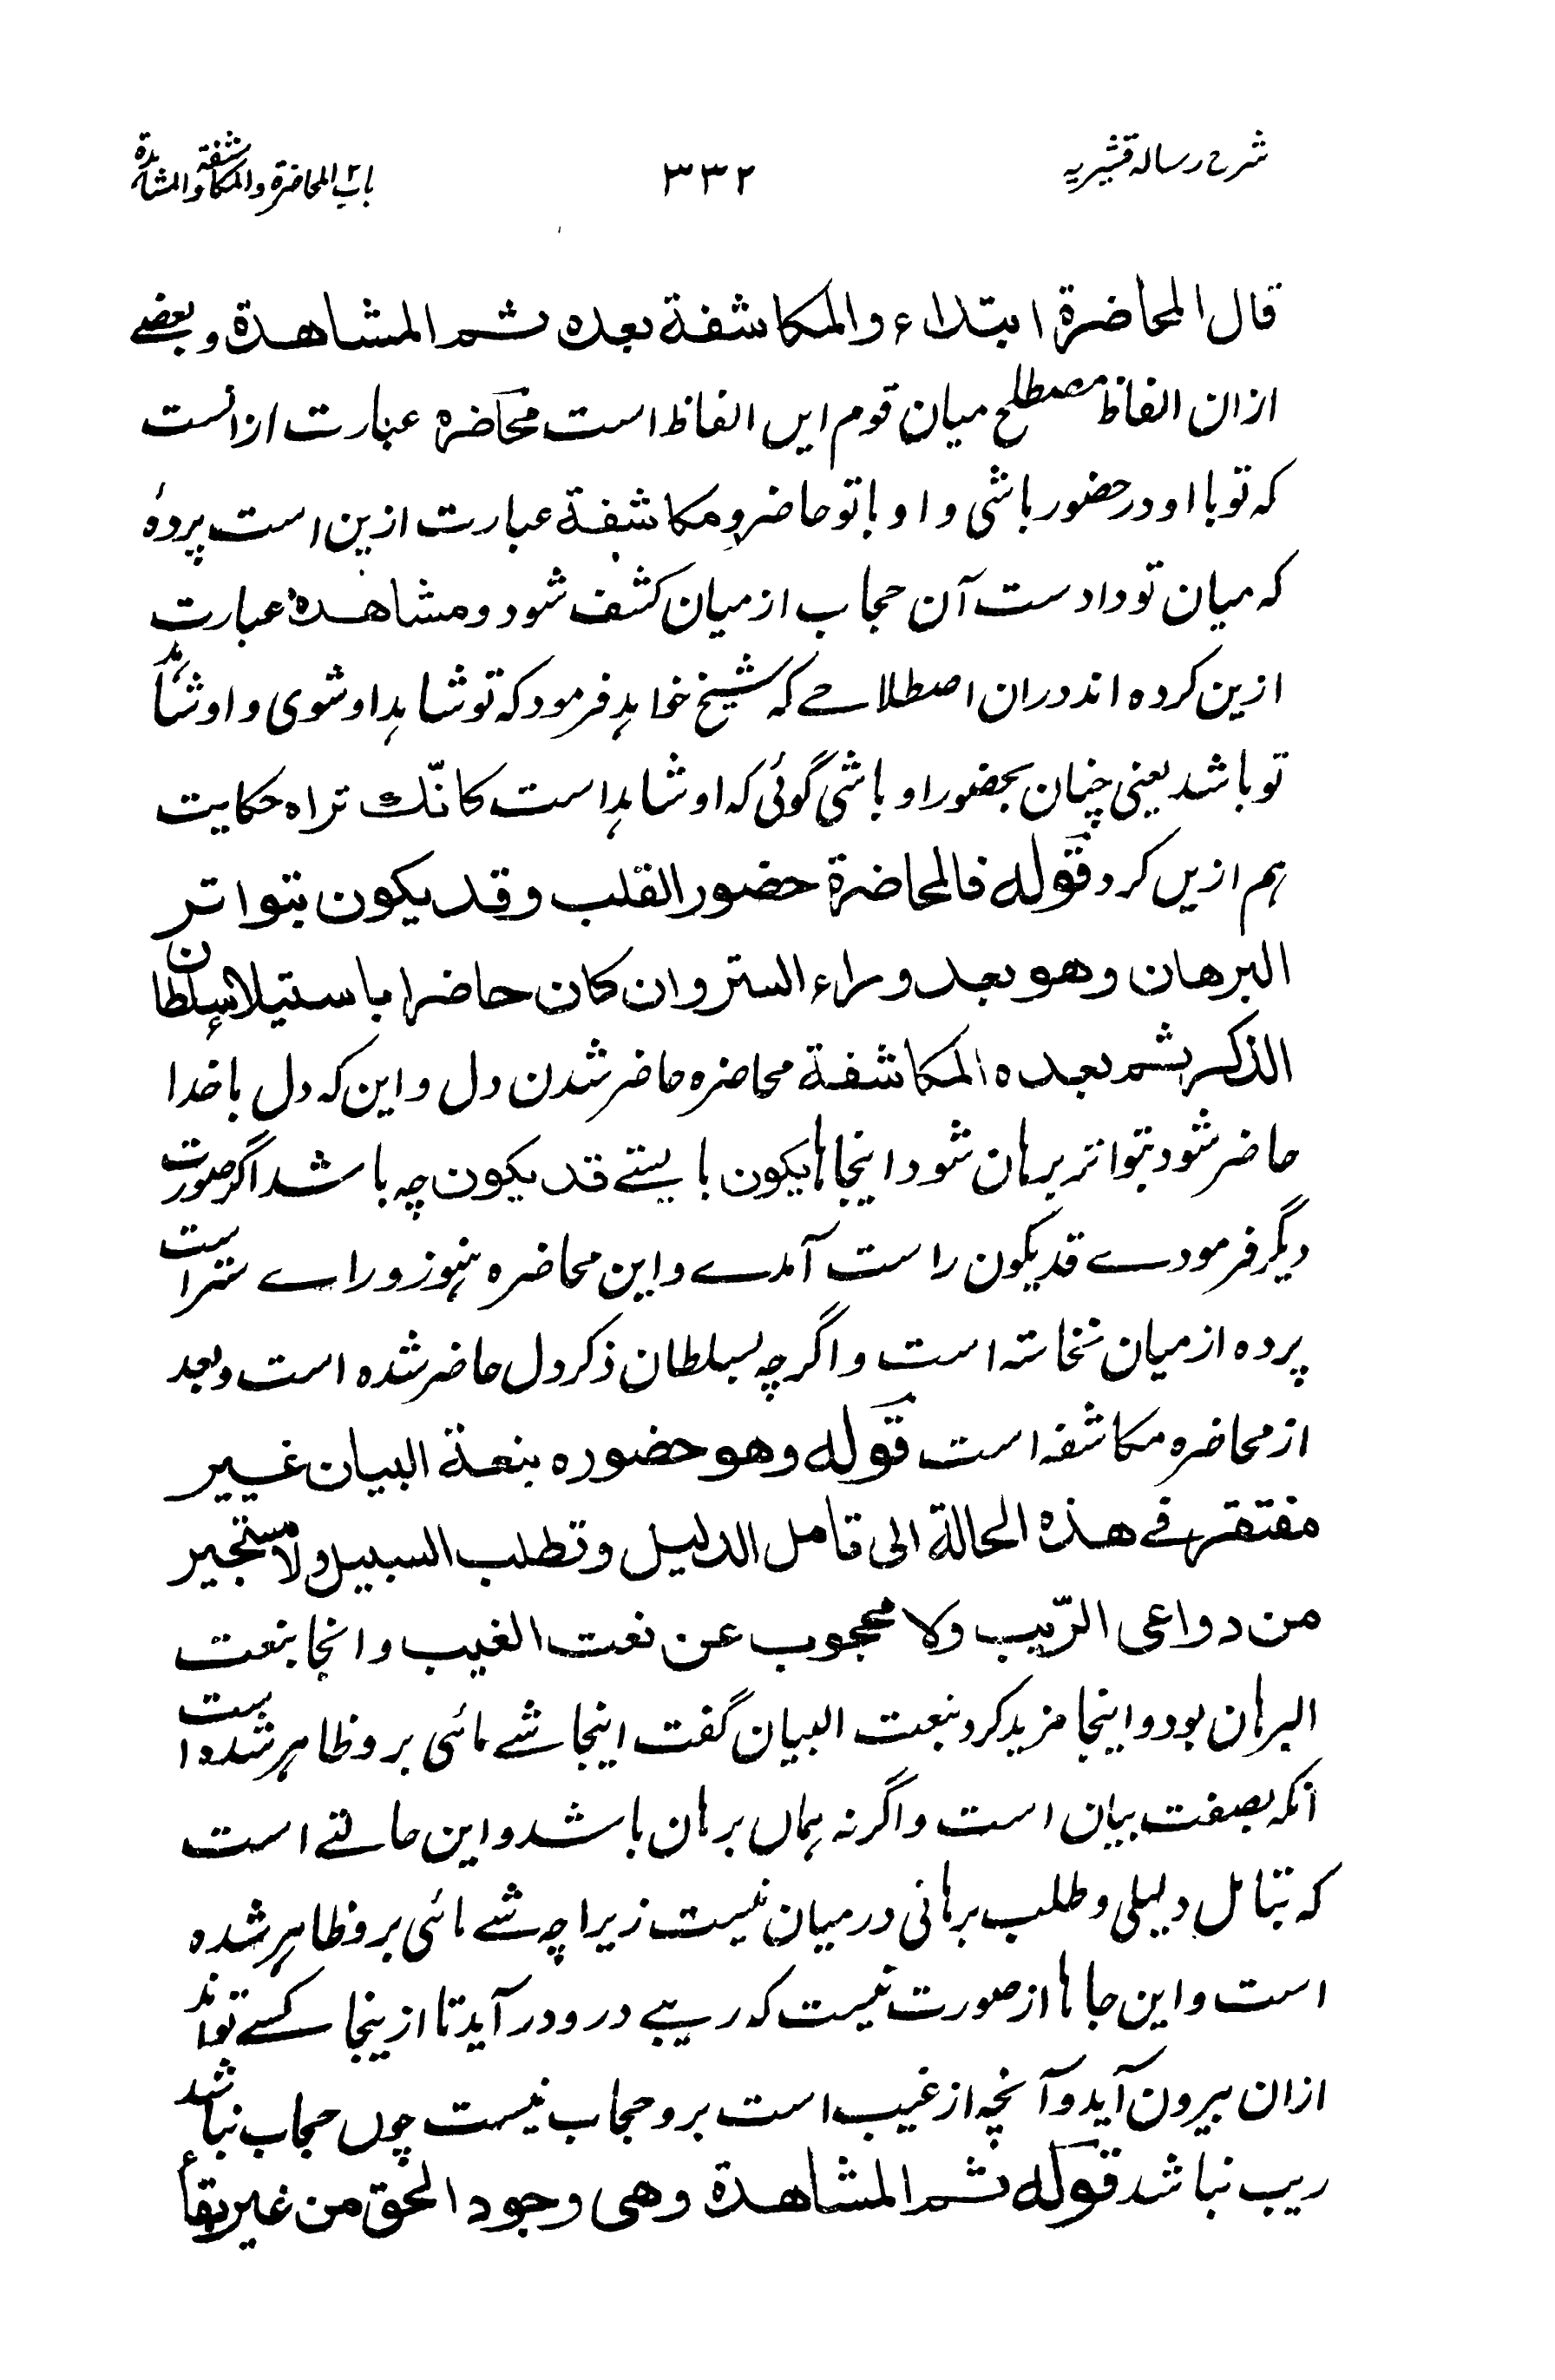 شرح رساله قشیریه
۳۳۲
باب المحاضرة والمکاشفة والمشاهدة
قال المحاضرة ابتداء والمکاشفة بعده ثم المشاهدة وبعضے
ازان الفاظ مصطلح میان قوم ایں الفاظ است محاضره عبارت ازانست
که تو با او در حضور باشی و او با تو حاضر ومکاشفة عبارت ازین است پردهٔ
که میان تو دادست آن حجاب از میان کشف شود ومشاهدهٔ عبارت
ازین کرده اند دران اصطلاحے که شیخ خواہد فرمود که تو شاہد او شوی و او شاہد
تو باشد یعنی چنان بحضور او باشی گوئی که او شاہد است کانّك تراه حکایت
ہم ازیں کرد قوله فالمحاضرة حضور القلب وقد یکون بتواتر
البرهان وهو بعد وراء الستر وان کان حاضرا باستیلاء سلطان
الذکر ثم بعده المکاشفة محاضره حاضر شدن دل و این که دل با خدا
حاضر شود بتواتر برہان شود اینجاہا یکون بایستے قد یکون چه باشد اگر صورت
دیگر فرمودے قد یکون راست آمدے و این محاضره ہنوز وراے ستر است
پرده از میان نخاسته است و اگرچه بسلطان ذکر دل حاضر شده است وبعد
از محاضره مکاشفه است قوله وهو حضوره بنعة البیان غیر
مفتقر فے هذه الحالة الی تامل الدلیل وتطلب السبیل ولا مستجیر
من دواعی الرّیب ولا محجوب عن نعت الغیب و انجا بنعت
البرہان بود و اینجا مزید کرد بنعت البیان گفت اینجا شے مائی بر و ظاہر شده است
انکه بصفت بیان است و اگرنه ہماں برہان باشد و این حالتے است
که بتامل دلیلی وطلب برہانی درمیان نیست زیرا چه شے مائی بر و ظاہر شده
است و این جاہا از صورت نیست که ریبے در و در آید تا ازینجا کسے تواند
ازان بیرون آید و آنچه از غیب است بر و حجاب نیست چوں حجاب نباشد
ریب نباشد قوله ثم المشاهدة وهی وجود الحق من غیر بقاء